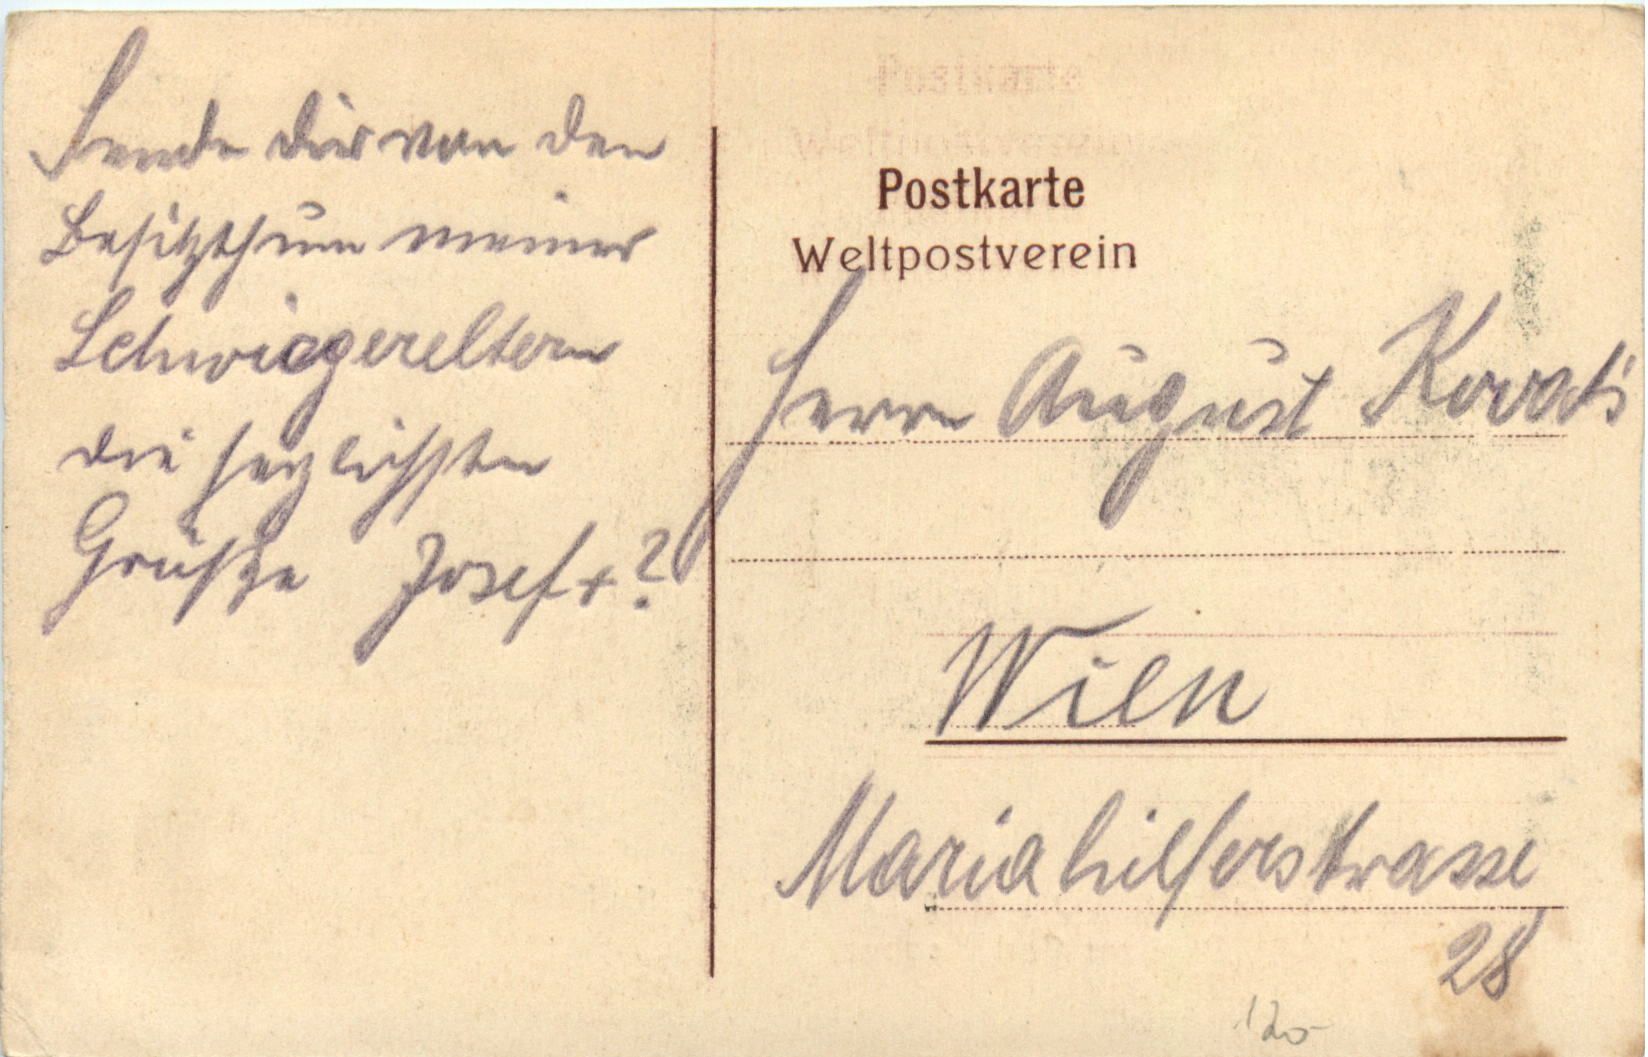 Sende dir von den
Besitzthum meiner
Schwiegereltern
die herzlichsten
Grüße Josef + ?
Postkarte
Weltpostverein
Herrn August Kovats
Wien
Mariahilferstrasse
28
120-